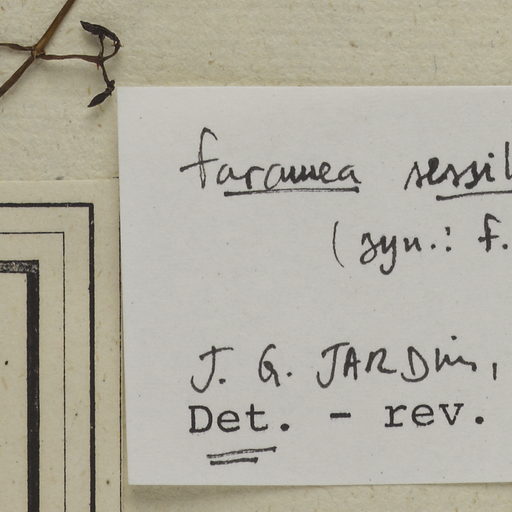 faramea sessil
(syn.: f.
J. G. JARDIM,
Det. - rev.